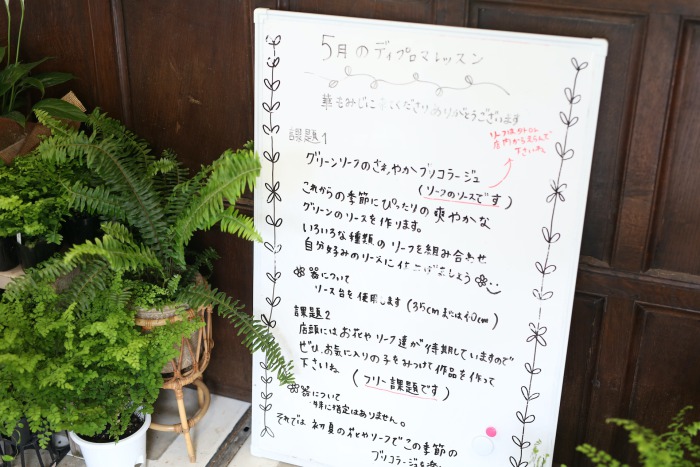 5月のディプロマレッスン
ありがとうございます
課題1
グリーンリーフのさわやかブリコラージュ
(リーフのリースです)
リーフは
店内からえらんで
下さいね
これからの季節にぴったりの爽やかな
グリーンのリースを作ります。
いろいろな種類のリーフを組み合わせ
自分好みのリースに仕上げましょう
器について
リース台を使用します (35cmまたは40cm)
課題2
店頭にはお花やリーフ達が待期していますので
ぜひ、お気に入りの子をみつけて作品を作って
下さいね (フリー課題です)
器について
特に指定はありません。
それでは初夏のお花やリーフでこの季節の
ブリコラージュを